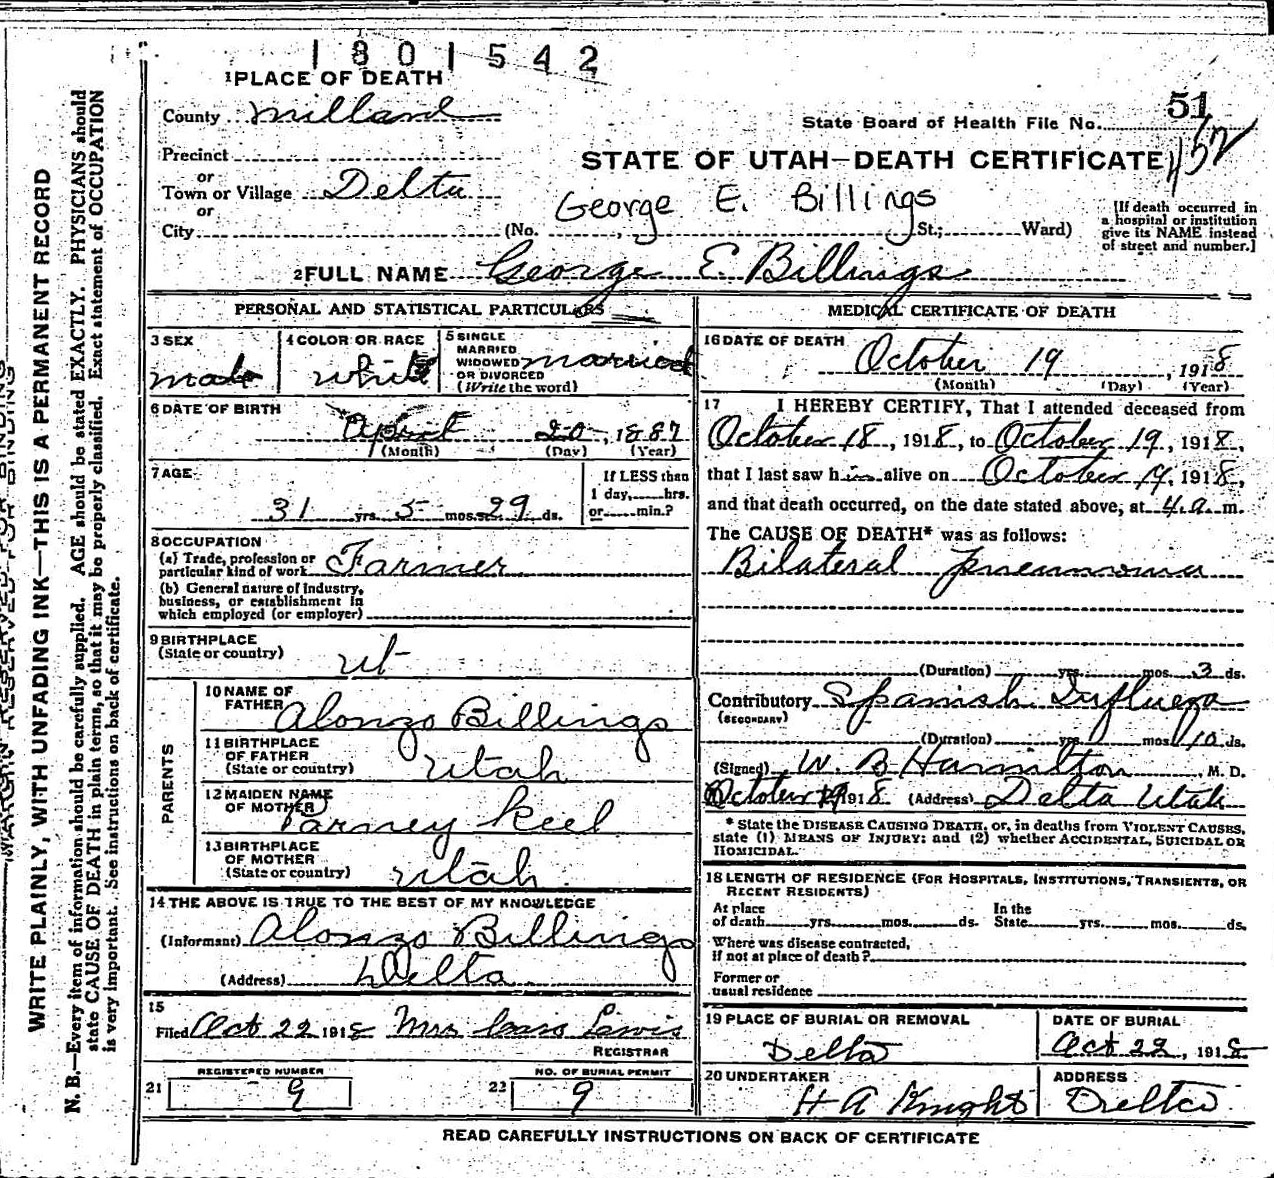 1801542
1 PLACE OF DEATH
County Millard
Precinct
or
Town or Village Delta
or
City (No. St.; Ward)
51
State Board of Health File No.
452
STATE OF UTAH—DEATH CERTIFICATE
George E. Billings
[If death occurred in
a hospital or institution
give its NAME instead
of street and number.]
2 FULL NAME George E. Billings
PERSONAL AND STATISTICAL PARTICULARS
3 SEX
male
4 COLOR OR RACE
white
5 SINGLE
MARRIED
WIDOWED
OR DIVORCED
(Write the word)
married
6 DATE OF BIRTH
April 20, 1887
(Month) (Day) (Year)
7 AGE
31 yrs. 5 mos. 29 ds.
If LESS than
1 day, hrs.
or min.?
8 OCCUPATION
(a) Trade, profession or
particular kind of work Farmer
(b) General nature of industry,
business, or establishment in
which employed (or employer)
9 BIRTHPLACE
(State or country) Ut
PARENTS
10 NAME OF
FATHER Alonzo Billings
11 BIRTHPLACE
OF FATHER
(State or country) Utah
12 MAIDEN NAME
OF MOTHER Parney Keel
13 BIRTHPLACE
OF MOTHER
(State or country) Utah
14 THE ABOVE IS TRUE TO THE BEST OF MY KNOWLEDGE
(Informant) Alonzo Billings
(Address) Delta
15
Filed Oct 22 1918 Mrs Lewis
REGISTRAR
REGISTERED NUMBER
21 9
NO. OF BURIAL PERMIT
22 9
MEDICAL CERTIFICATE OF DEATH
16 DATE OF DEATH
October 19, 1918
(Month) (Day) (Year)
17 I HEREBY CERTIFY, That I attended deceased from
October 18, 1918, to October 19, 1918,
that I last saw him alive on October 19, 1918,
and that death occurred, on the date stated above, at 4 a. m.
The CAUSE OF DEATH* was as follows:
Bilateral Pneumonia
(Duration) yrs. mos. 3 ds.
Contributory Spanish Influenza
(SECONDARY)
(Duration) yrs. mos. 10 ds.
(Signed) W. B Hamilton, M. D.
October 19 1918 (Address) Delta Utah
* State the DISEASE CAUSING DEATH, or, in deaths from VIOLENT CAUSES,
state (1) MEANS OF INJURY; and (2) whether ACCIDENTAL, SUICIDAL OR
HOMICIDAL.
18 LENGTH OF RESIDENCE (FOR HOSPITALS, INSTITUTIONS, TRANSIENTS, OR
RECENT RESIDENTS)
At place In the
of death yrs. mos. ds. State yrs. mos. ds.
Where was disease contracted,
if not at place of death?
Former or
usual residence
19 PLACE OF BURIAL OR REMOVAL
Delta
DATE OF BURIAL
Oct 22, 1918
20 UNDERTAKER
H A Knight
ADDRESS
Delta
READ CAREFULLY INSTRUCTIONS ON BACK OF CERTIFICATE
MARGIN RESERVED FOR BINDING
WRITE PLAINLY, WITH UNFADING INK—THIS IS A PERMANENT RECORD
N. B.—Every item of information should be carefully supplied. AGE should be stated EXACTLY. PHYSICIANS should
state CAUSE OF DEATH in plain terms, so that it may be properly classified. Exact statement of OCCUPATION
is very important. See instructions on back of certificate.